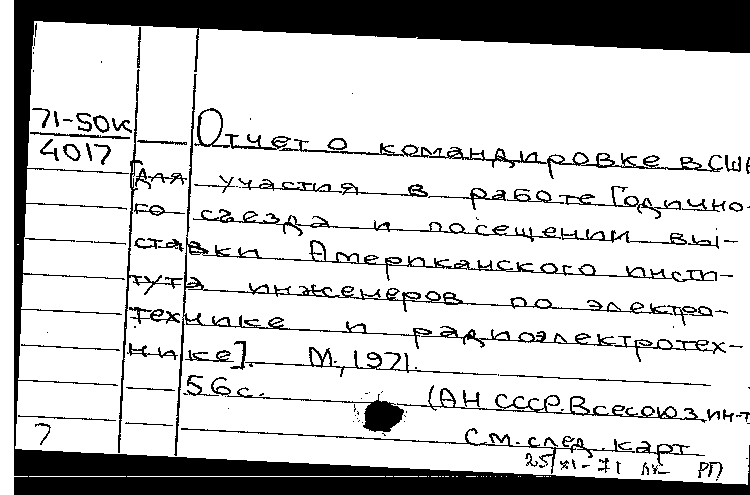 71-50к
4017
Отчет о командировке в США
[для участия в работе Годично-
го съезда и посещении вы-
ставки Американского инсти-
тута инженеров по электро-
технике и радиоэлектротех-
нике]. М., 1971.
56 с. (АН СССР. Всесоюз. ин-т
См. след. карт
7
25/XI-71 РП